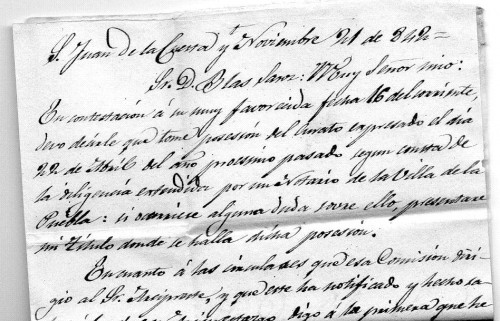 S. Juan de la Cuesta y Noviembre 21 de 842=
Sr. D. Blas Sanz: Muy Señor mio:
En contestación á su muy favorecida fecha 16 del corriente,
devo decirle que tomé posesión del Curato expresado el dia
22 de Abril del año procsimo pasado segun consta de
la diligencia extendida por un Notario de la Villa de la
Puebla: si ocurriese alguna duda sovre ello, presentare
mi título donde se halla dicha posesión.
En cuanto á las circulares que esa Comisión diri-
gio al Sr. Arcipreste, y que este ha notificado y hecho sa-
digo á la primera que he